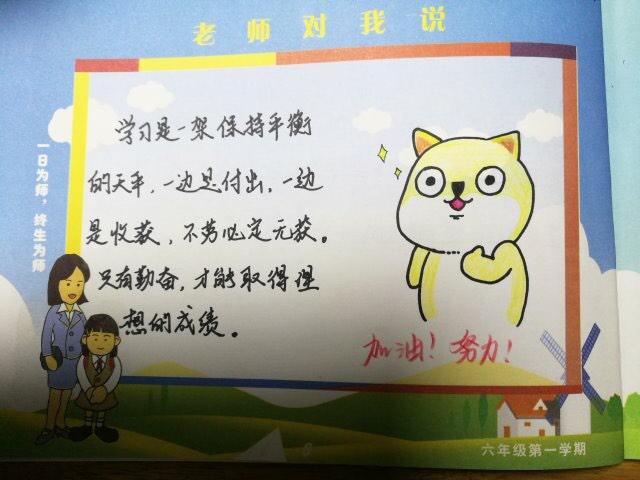 老师对我说
一日为师，终生为师
学习是一架保持平衡
的天平，一边是付出，一边
是收获，不劳必定无获。
只有勤奋，才能取得理
想的成绩。
加油！努力！
六年级第一学期